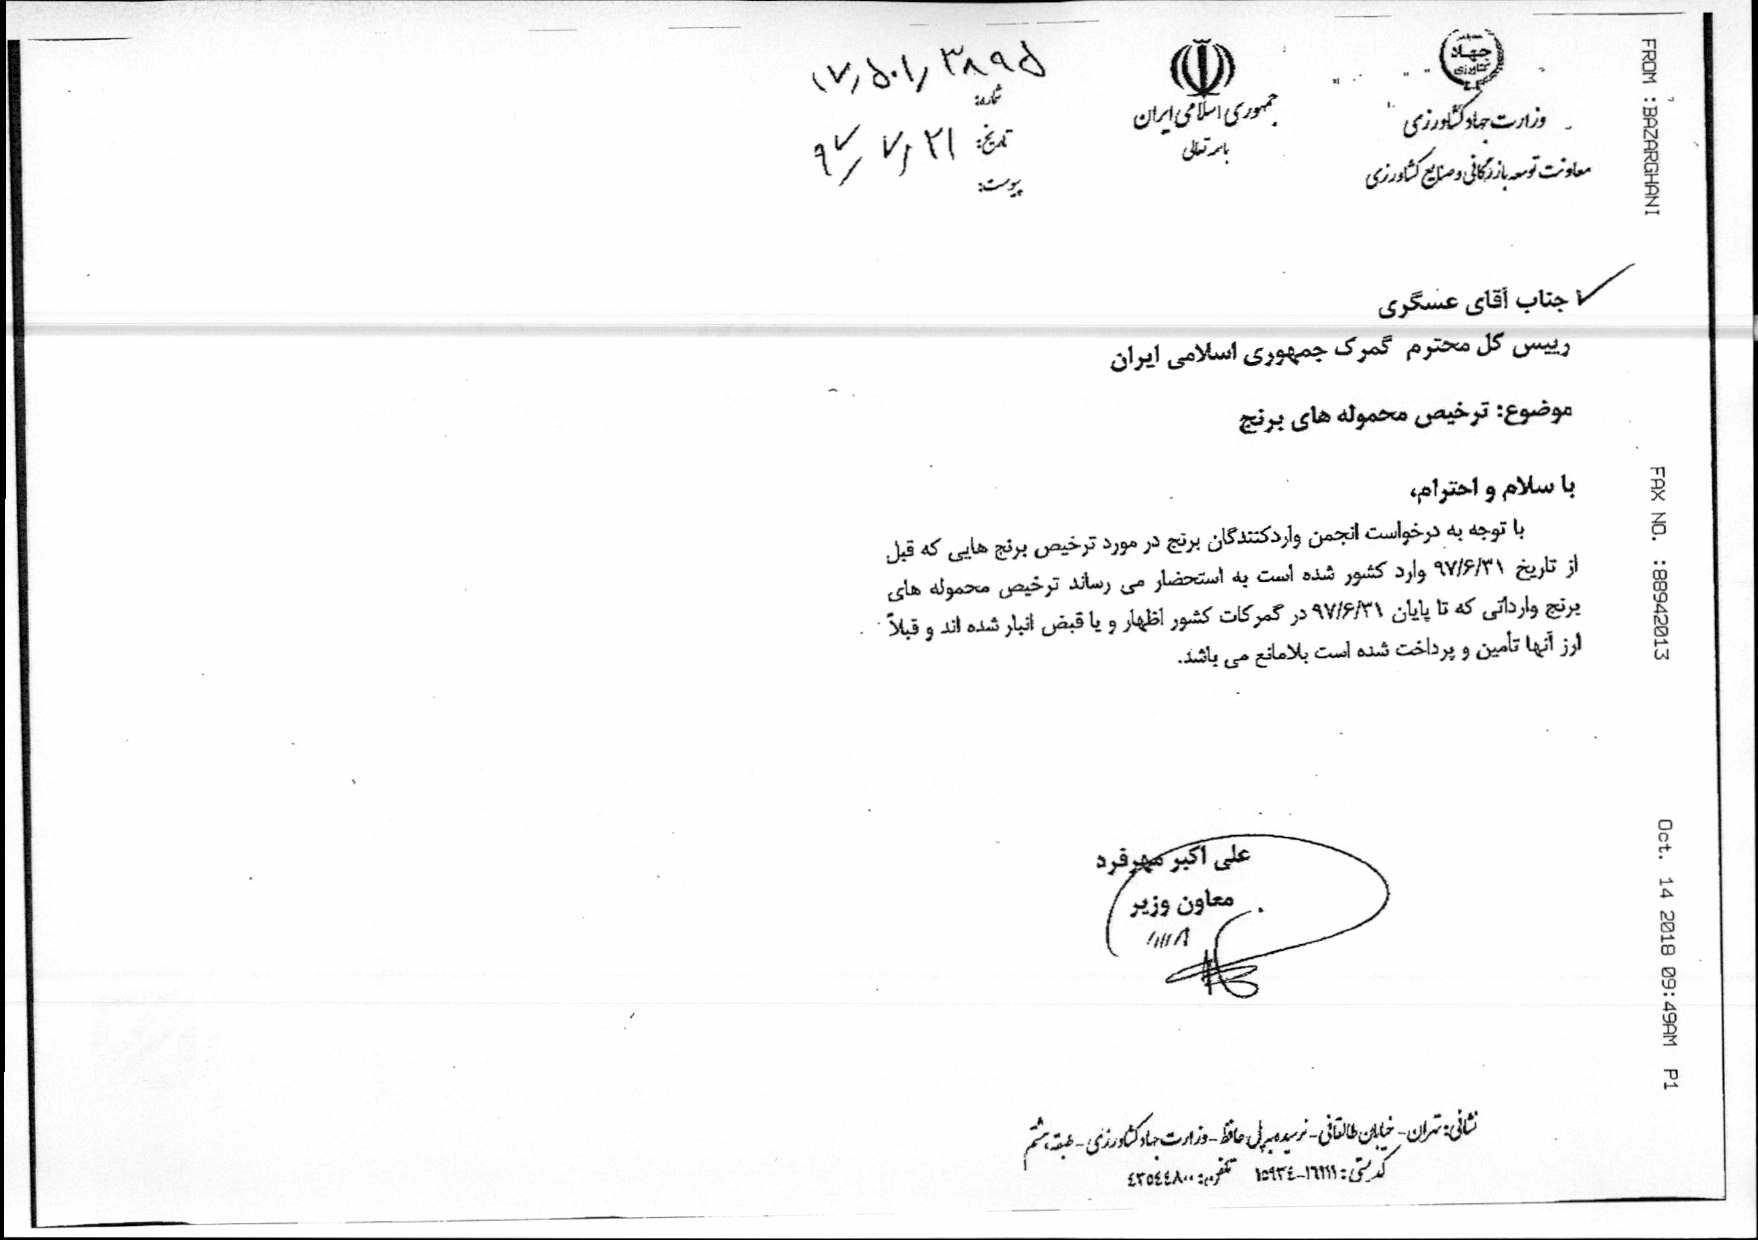 FROM : BAZARGHANI
FAX NO. : 88942013
Oct. 14 2018 09:49AM P1
جهاد
کشاورزی
وزارت جهاد کشاورزی
معاونت توسعه بازرگانی و صنایع کشاورزی
جمهوری اسلامی ایران
باسمه تعالی
شماره:
تاریخ: ۹۷/۷/۲۱
پیوست:
جناب آقای عسگری
رییس کل محترم گمرک جمهوری اسلامی ایران
موضوع: ترخیص محموله های برنج
با سلام و احترام،
با توجه به درخواست انجمن واردکنندگان برنج در مورد ترخیص برنج هایی که قبل
از تاریخ ۹۷/۶/۳۱ وارد کشور شده است به استحضار می رساند ترخیص محموله های
برنج وارداتی که تا پایان ۹۷/۶/۳۱ در گمرکات کشور اظهار و یا قبض انبار شده اند و قبلاً
ارز آنها تأمین و پرداخت شده است بلامانع می باشد.
علی اکبر مهرفرد
معاون وزیر
نشانی: تهران - خیابان طالقانی - نرسیده به پل حافظ - وزارت جهاد کشاورزی - طبقه هشتم
کد پستی: ۱۶۱۱۱-۱۵۹۳٤ تلفن: ٤۳٥٤٤۸۰۰